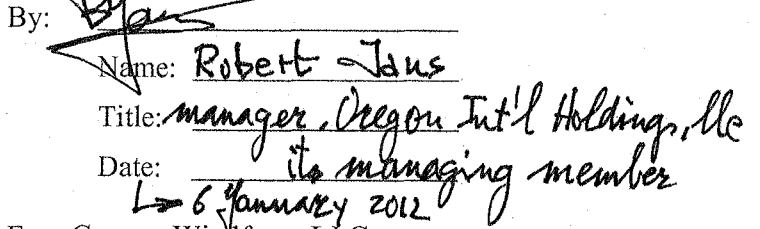 By:
Name: Robert Jans
Title: manager, Oregon Int'l Holdings, llc
Date: its managing member
6 January 2012